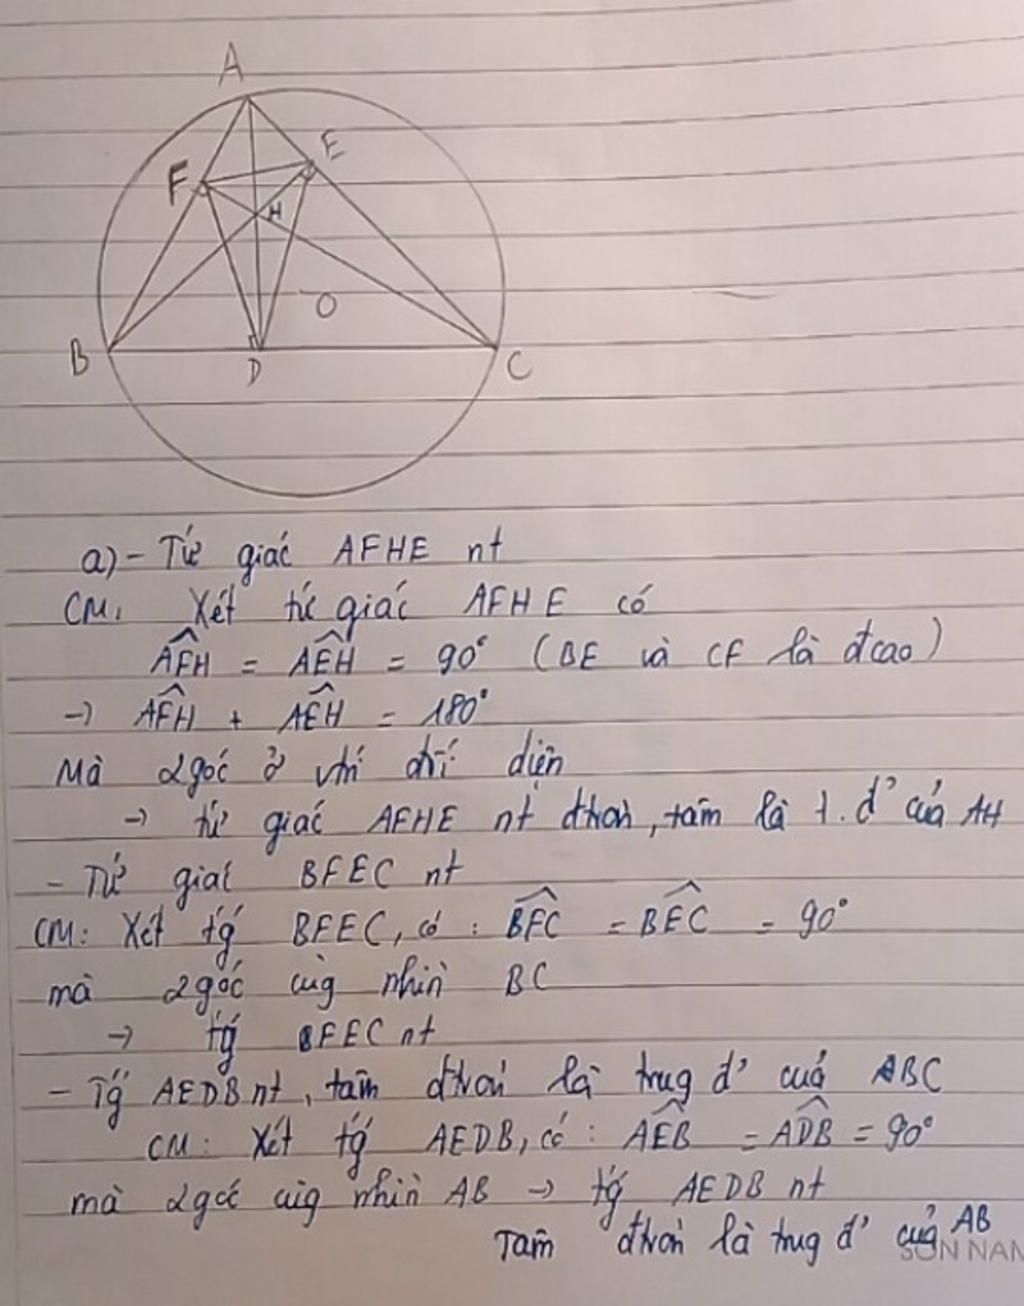 A
E
F
H
O
B
D
C
a) - Tứ giác AFHE nt
CM: Xét tứ giác AFHE có
AFH = AEH = 90° (BE và CF là đcao)
→ AFH + AEH = 180°
Mà 2 góc ở vtrí đối diện
→ tứ giác AFHE nt đtròn, tâm là t.đ' của AH
- Tứ giác BFEC nt
CM: Xét tg BFEC, có : BFC = BEC = 90°
mà 2 góc cùg nhìn BC
→ tg BFEC nt
- Tg AEDB nt, tâm đtròn là trug đ' cuả ABC
CM: Xét tg AEDB, có : AEB = ADB = 90°
mà 2 góc cùg nhìn AB → tg AEDB nt
Tâm đtròn là trug đ' cuả AB
SƠN NAM